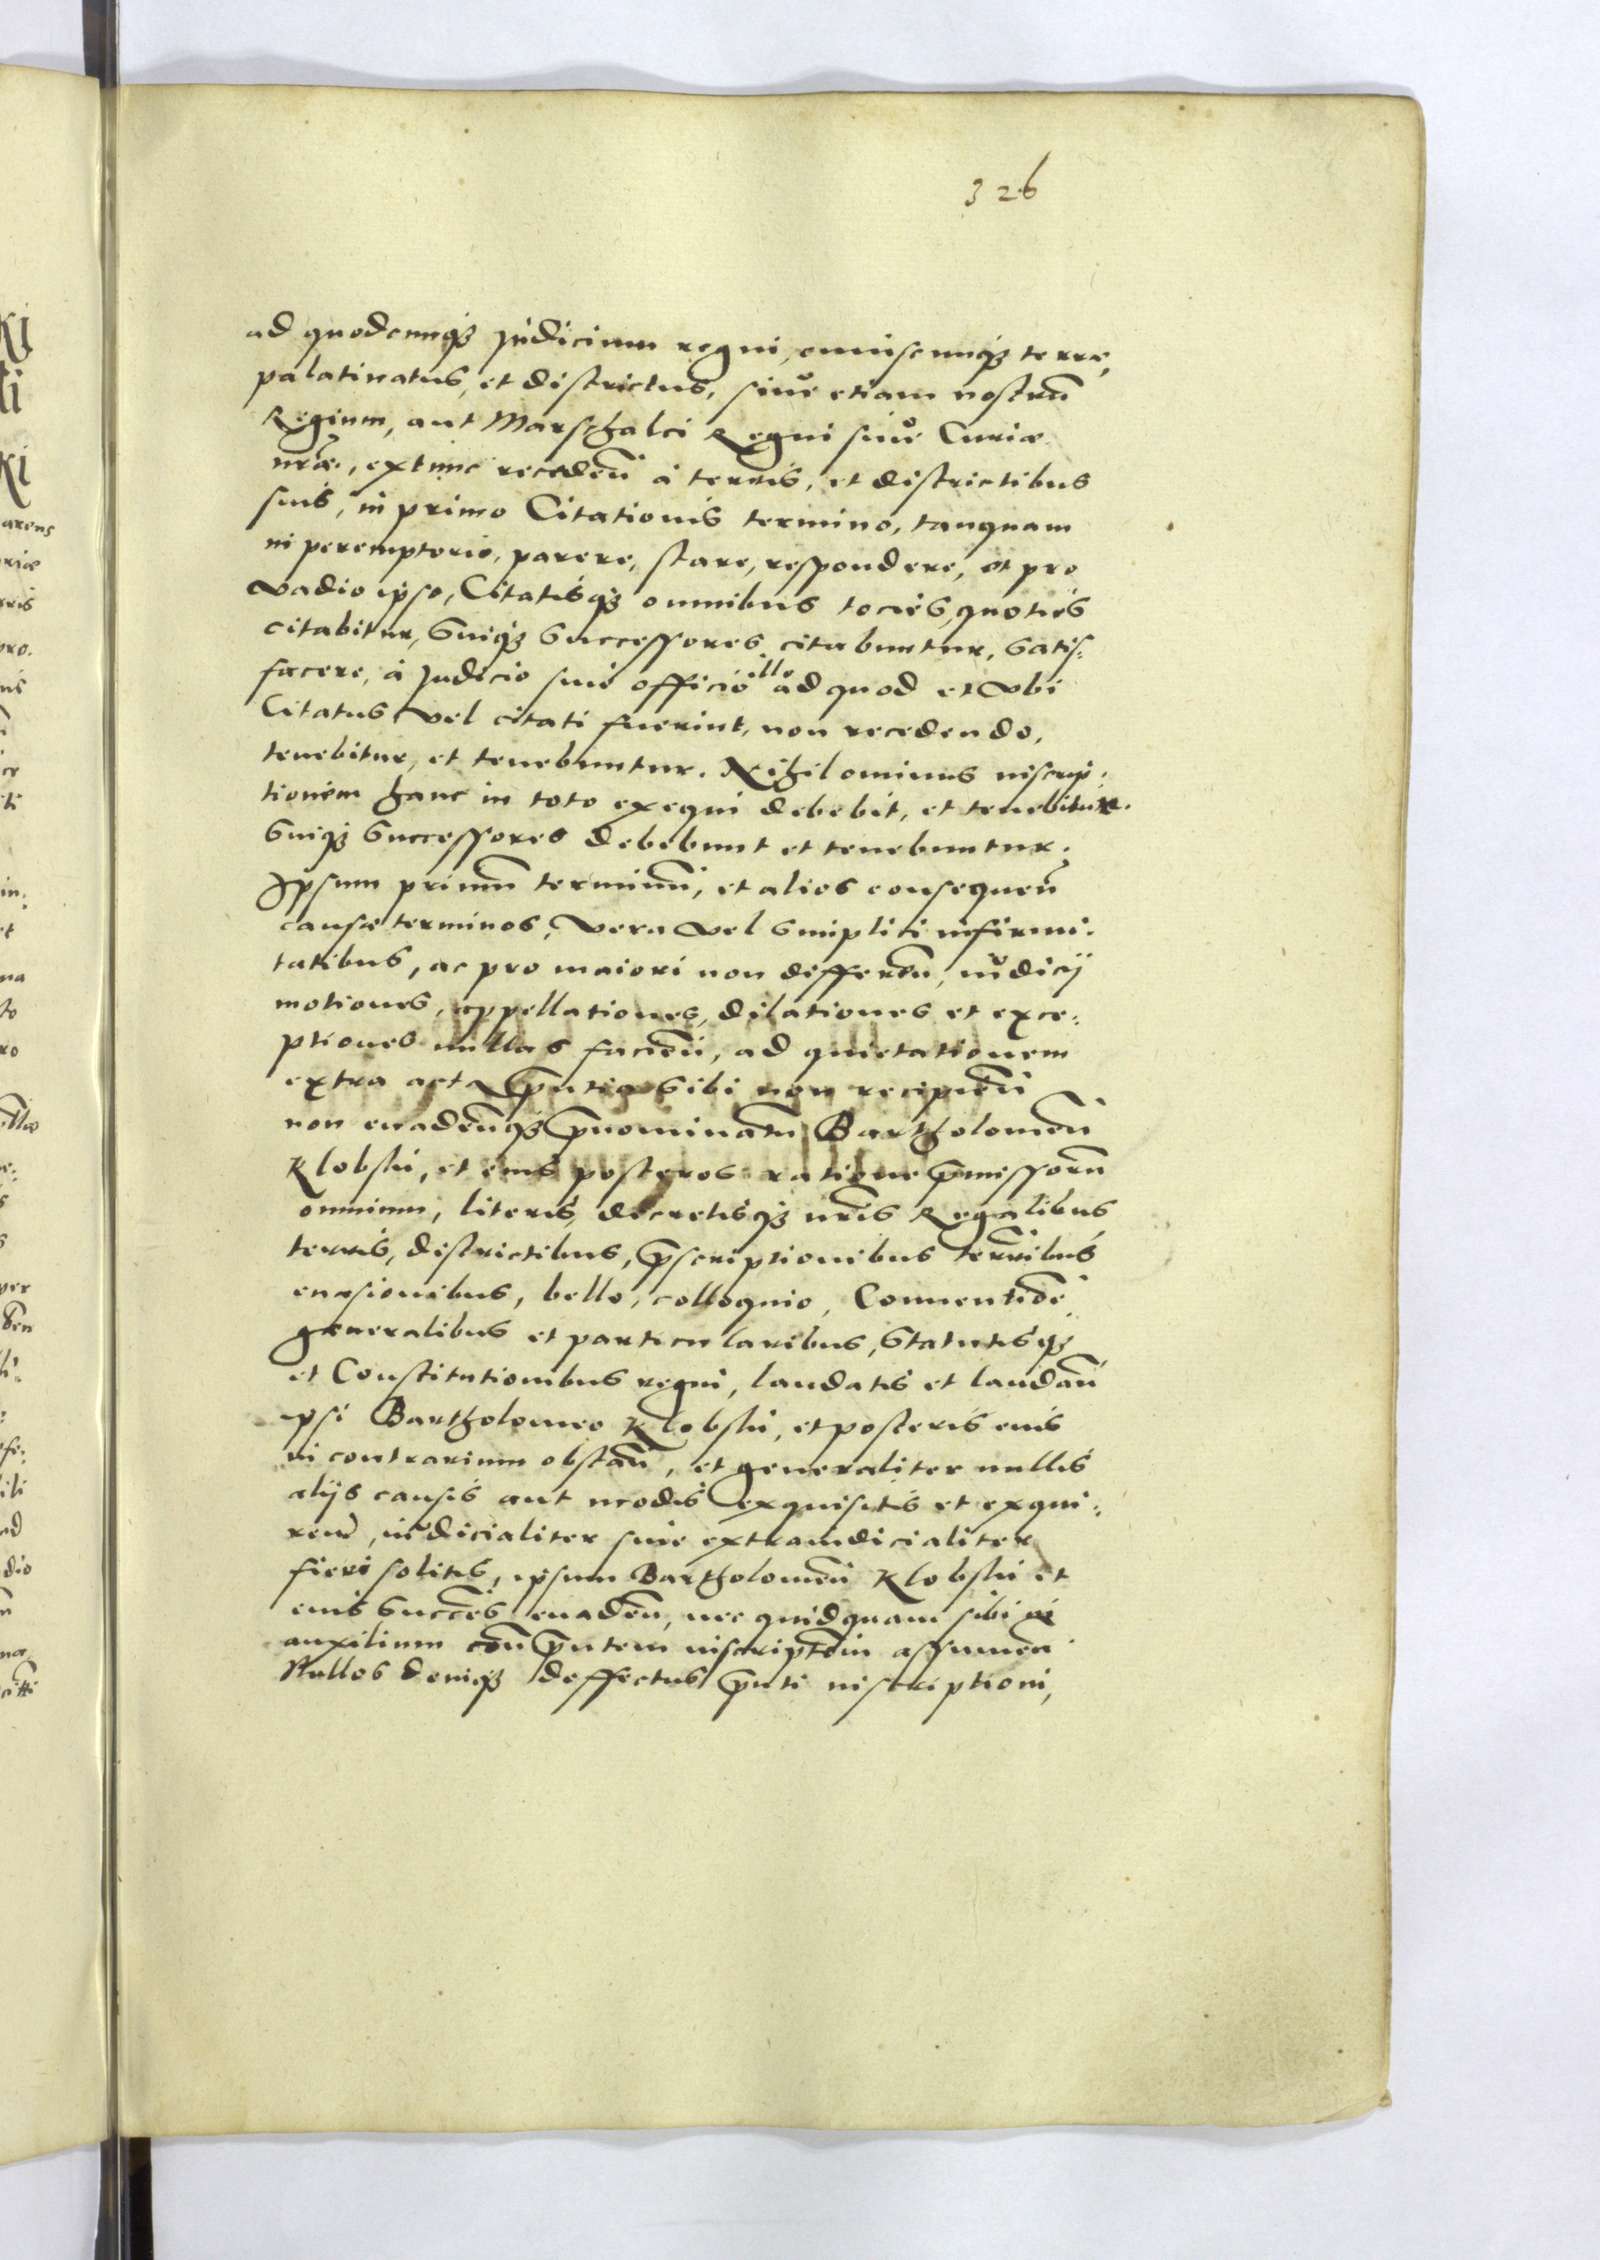 326
ad quodcunq₃ Judicium regni, cuiuscunq₃ terre,
palatinatus, et districtus, siue etiam nostrū
Regium, aut Marschalci Regni siue Curiæ
nr̄æ, extunc recedeñ à terris, et districtibus
suis, in primo Citationis termino, tanquam
in peremptorio, parere, stare, respondere, et pro
vadio ipso, Citatisq₃ omnibus tociės, quoties
citabitur, Suiq₃ Successores citabuntur, Satis=
facere, à Judicio siue officio illo ad quod et vbi
Citatus vel citati fuerint, non recedendo,
tenebitur, et tenebuntur. Nihilominus inscrip.
tionem hanc in toto exequi debebit, et tenebitur.
Suiq₃ Successores debebunt et tenebuntur.
Ipsum primū terminū, et alios consequeñ
causæ terminos, vera vel Simplici infirmi.
tatibus, ac pro maiori non differeñ, iudicij
motiones, appellationes, dilationes et exce=
ptiones nullas facieñ, ad quietationem
extra acta p̄ntia Sibi non recipieñ
non euadeñq₃ p̄nominatū Bartholomeū
Klobski, et eius posteros ratione p̄missorū
omnium, literis, decretisq₃ nr̄is Regalibus
terris, districtibus, p̄scriptionibus terr̄ibus
euasionibus, bello, colloquio, Conuentiōē
generalibus et particularibus, Statutisq₃
et Constitutionibus regni, laudatis et laudañ
ipsi Bartholomeo Klobski, et posteris eius
in contrarium obstañ, et generaliter nullis
alijs causis aut modis exquisitis et exqui=
reñ, iudicialiter siue extraiudicialiter
fieri solitis, ipsum Bartholomeū Klobski et
eius Succēs euadeñ, nec quidquam sibi in
auxilium coñ p̄ntem inscriptōēm assumeñ
Nullos deniq₃ deffectus p̄nti inscriptioni,